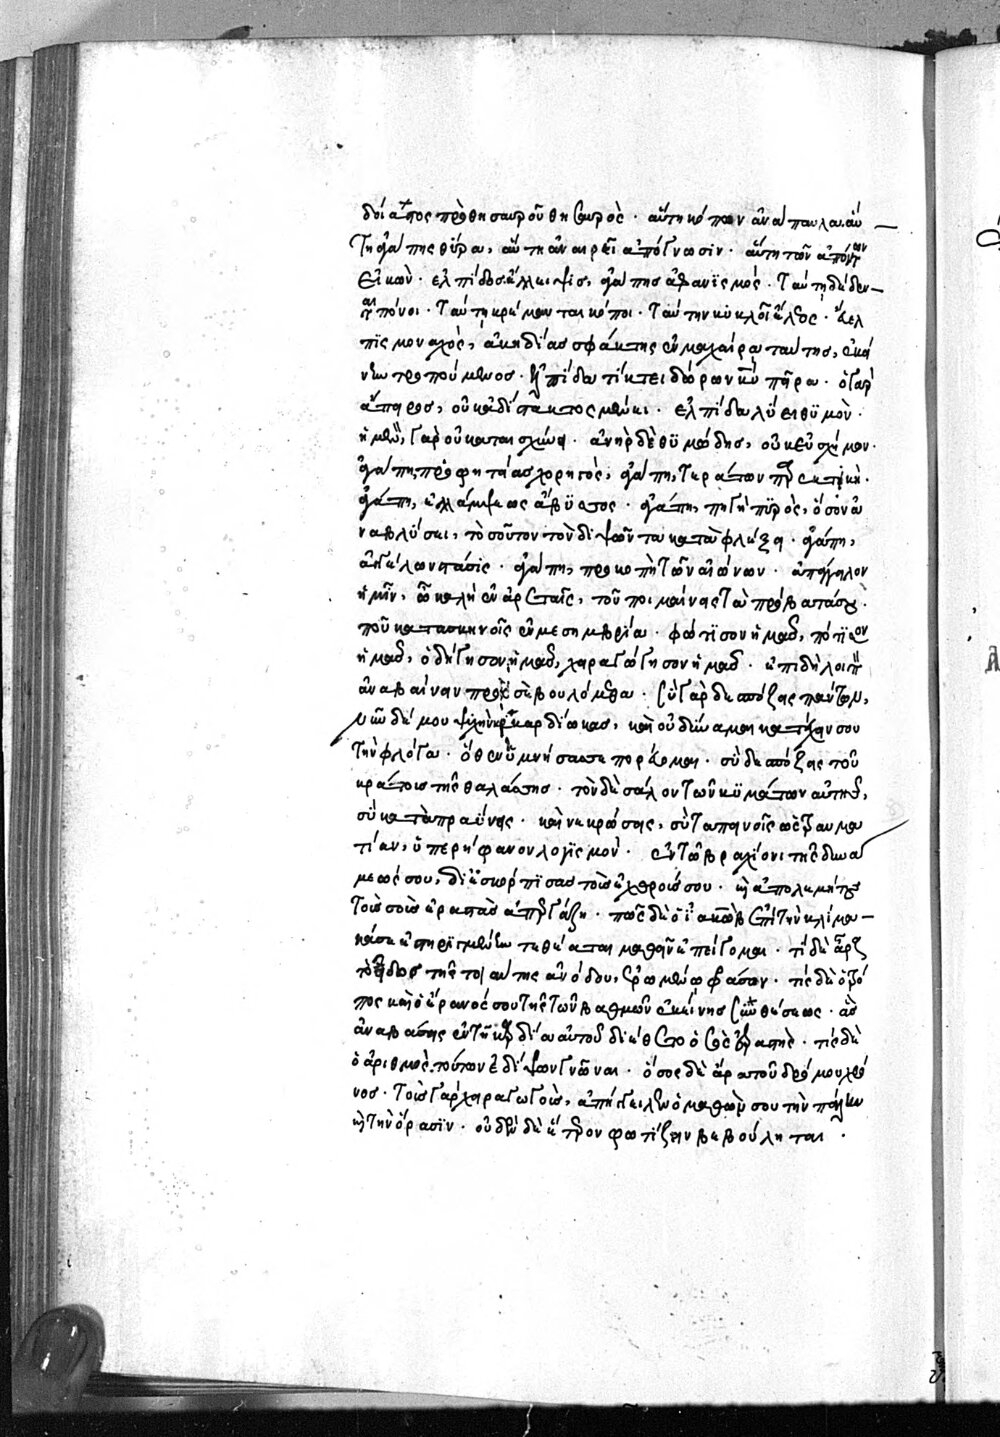 δοίατος πρὸ θησαυροῦ θησαυρὸς· αὕτη κόπων ἀνάπαυλα. αὕ
τη ἀγάπης θύρα, αὕτη ἀναιρεῖ ἀπόγνωσιν· αὕτη τῶν ἀπόντων
εἰκὼν· ἐλπίδος ἔλλειψις, ἀγάπης ἀφανισμός· ταύτη δέδεν
ται πόνοι· ταύτη κρέμανται κόποι· ταύτην κυκλοῖ ἔλεος· εὔελ
πις μοναχὸς, ἀκηδίας σφάκτης ἐν μαχαίρᾳ ταύτης, ἐκεί
νην τροπούμενος· ἐλπίδα τίκτει δώρων κυρίου πεῖρα· ὁ γὰρ
ἄπειρος, οὐκ ἀδίστακτος μένει· ἐλπίδα λύει θυμὸν·
ἡ μὲν γὰρ οὐ καταισχύνει· ἀνὴρ δὲ θυμώδης, οὐκ εὐσχήμων·
ἀγάπη προφητείας χορηγὸς, ἀγάπη, τεράτων παρεκτική·
ἀγάπη, ἐλλάμψεως ἄβυσσος· ἀγάπη, πηγὴ πυρὸς, ὅσον ἀ
ναβλύσει, τοσοῦτον τὸν διψῶντα καταφλέξει· ἀγάπη,
ἀγγέλων στάσις· ἀγάπη, προκοπὴ τῶν αἰώνων· ἀπάγγειλον
ἡμῖν, ὦ καλὴ ἐν ἀρεταῖς, ποῦ ποιμαίνεις τὰ πρόβατά σου·
ποῦ κατασκηνοῖς ἐν μεσημβρίᾳ· φώτισον ἡμᾶς, πότισον
ἡμᾶς, ὁδήγησον ἡμᾶς, χειραγώγησον ἡμᾶς· ἐπιδὴ λοιπὸν
ἀναβαίνειν πρὸς σὲ βουλόμεθα· σὺ γὰρ δεσπόζεις πάντων,
νῦν δέ μου ψυχὴν καὶ καρδίωσας, καὶ οὐ δύναμαι κατέχειν σου
τὴν φλόγα· ὅθεν ὑμνήσασα πορεύομαι· σὺ δεσπόζεις τοῦ
κράτους τῆς θαλάσσης· τὸν δὲ σάλον τῶν κυμάτων αὐτῆς,
σὺ καταπραΰνεις· καὶ νεκρώσεις, σὺ ταπεινοῖς ὡς τραυμα
τίαν, ὑπερήφανον λογισμὸν· ἐν τῷ βραχίονι τῆς δυνά
μεώς σου, διεσκόρπισας τοὺς ἐχθρούς σου· καὶ ἀπολεμήτους
τοὺς σοὺς ἐραστὰς ἀπεργάζῃ· πῶς δὲ ὁ Ἰακὼβ ἐπὶ τὴν κλίμα
κά σε ἐπηρειγμένην τεθέαται μαθεῖν ἐπείγομαι· τί δὲ ἄρα
τὸ εἶδος τῆς τοιαύτης ἀνόδου, ἐρωμένῳ φράσον· τίς δὲ ὁ τρό
πος καὶ ὁ ἔρανός σου τῆς τῶν βαθμῶν ἐκείνης συνθέσεως· ἃς
ἀναβάσεις ἐν τῇ καρδίᾳ αὐτοῦ διέθετο ὁ σὸς ἐραστὴς· τίς δὲ
ὁ ἀριθμὸς τούτων ἐδίψων γνῶναι· ὅσος δὲ ἄρα τοῦ δρόμου χρό
νος· τοὺς γὰρ χειραγωγοὺς, ἀπήγγειλεν ὁ μαθών σου τὴν πάλην
καὶ τὴν ὅρασιν· οὐδὲν δὲ ἕτερον φωτίζειν βεβούληται·